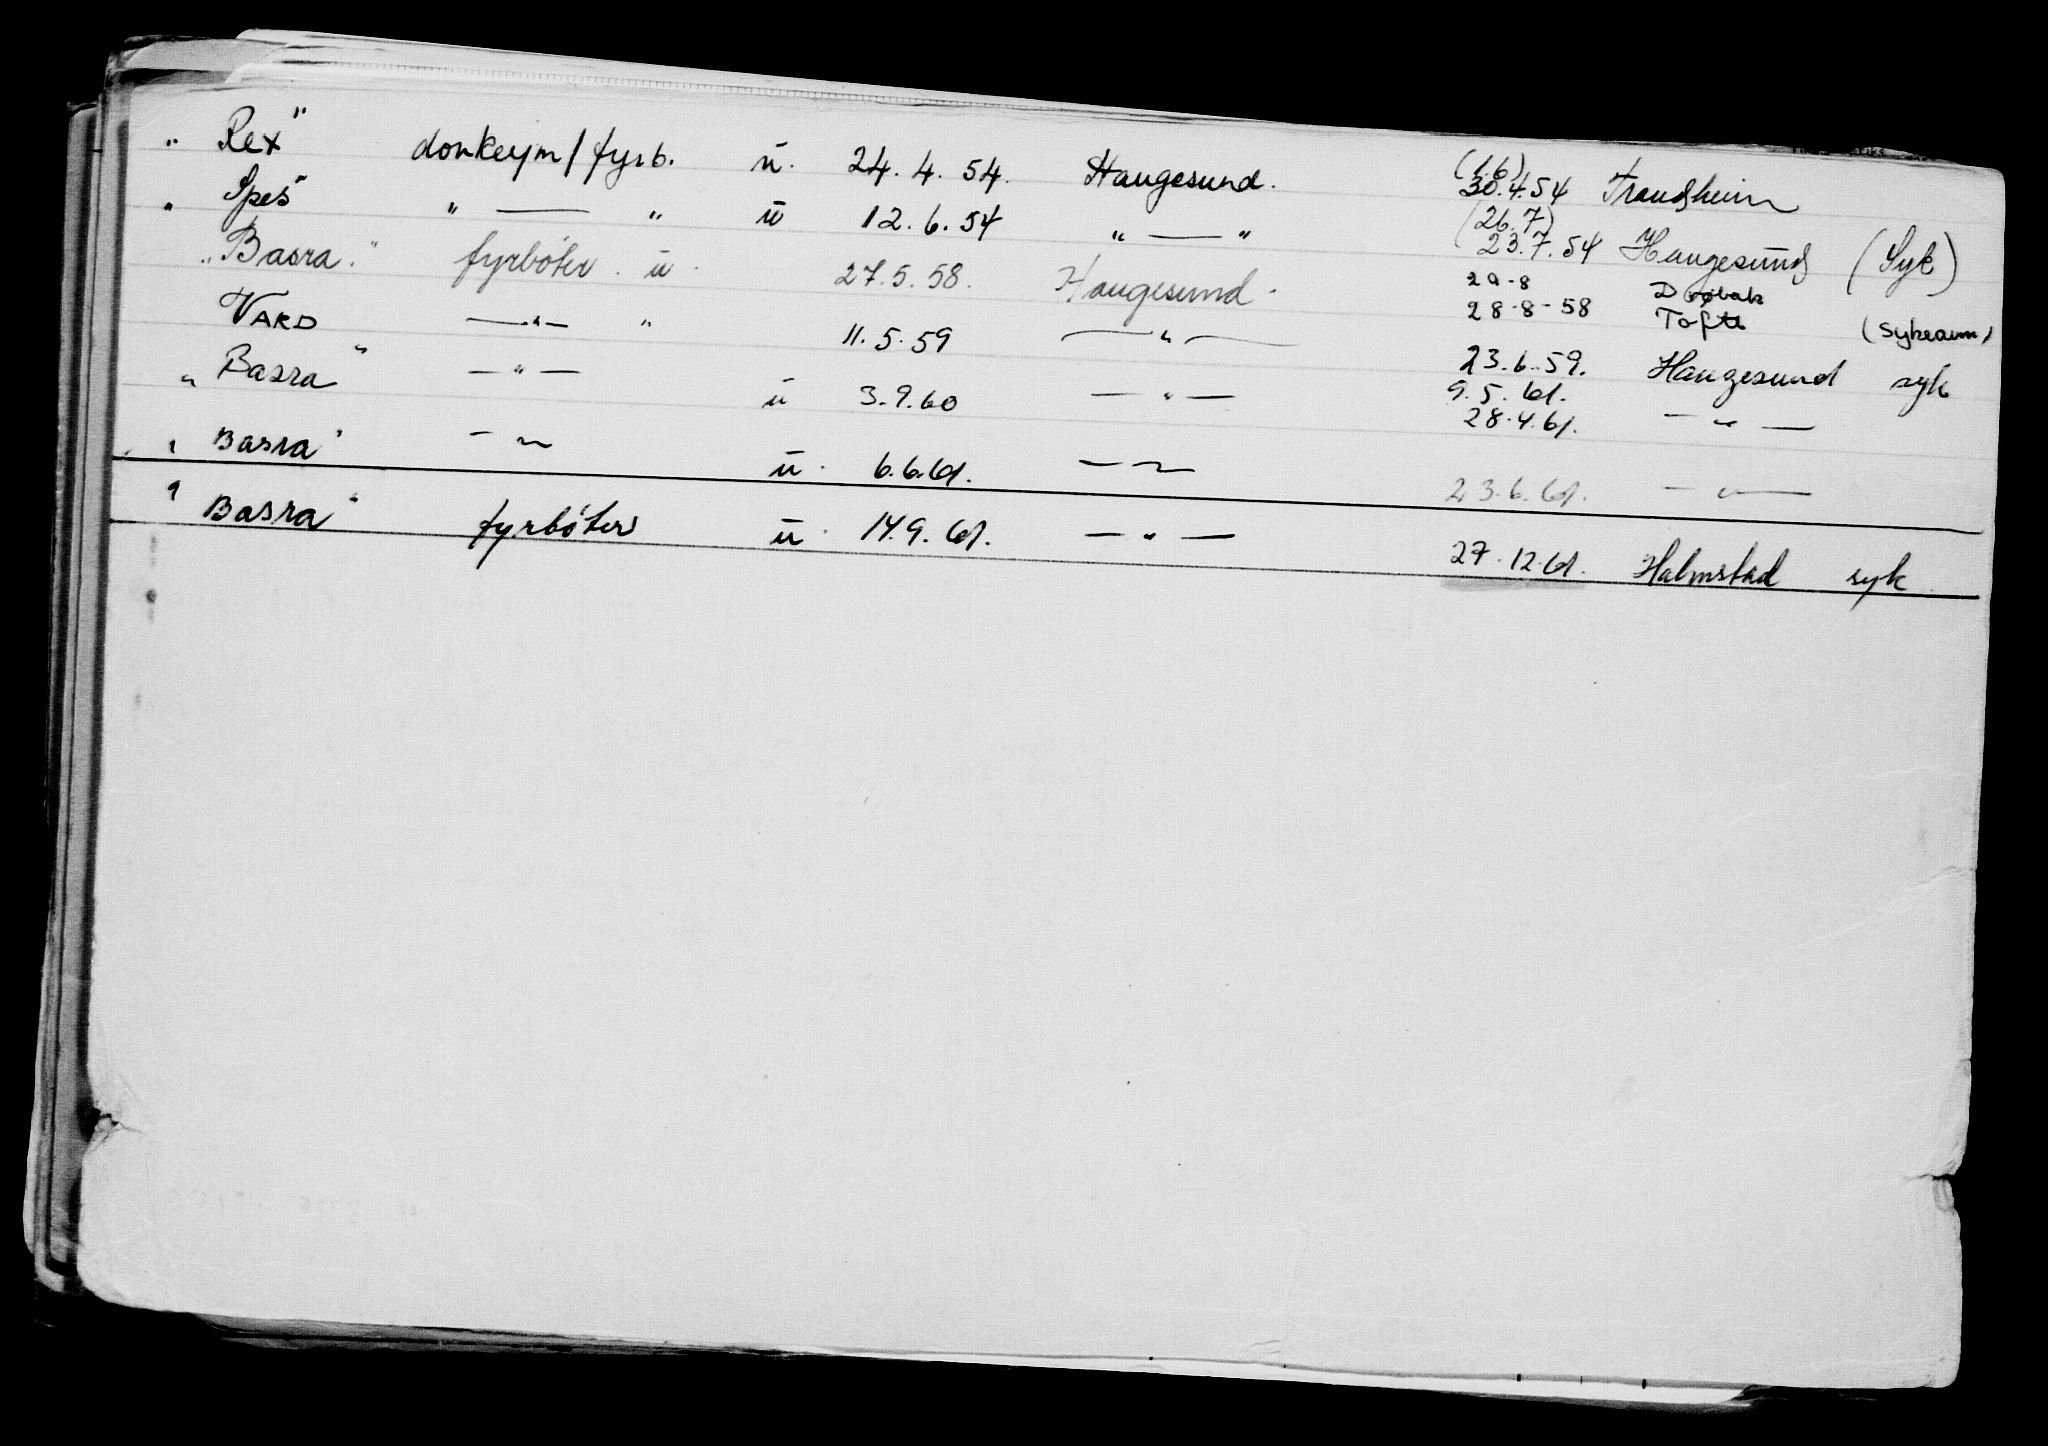 " Rex" donkeym/fyrb. ū. 24.4.54. Haugesund. (1.6) 30.4.54 Trondheim
" Spes" " — " ū 12.6.54 " — " (26.7) 23.7.54 Haugesund (Syk)
"Basra." fyrbøter. ū. 27.5.58. Haugesund. 29-8 Drøbak
28-8-58 Tofte
VARD —"— " 11.5.59 —"— 23.6.59. Haugesund syk
" Basra" —"— ū 3.9.60 —"— 9.5.61.
28.4.61. —"—
" Basra" —"— ū. 6.6.61. —"— 23.6.61. —"—
" Basra" fyrbøter ū. 14.9.61. —"— 27.12.61. Halmstad syk